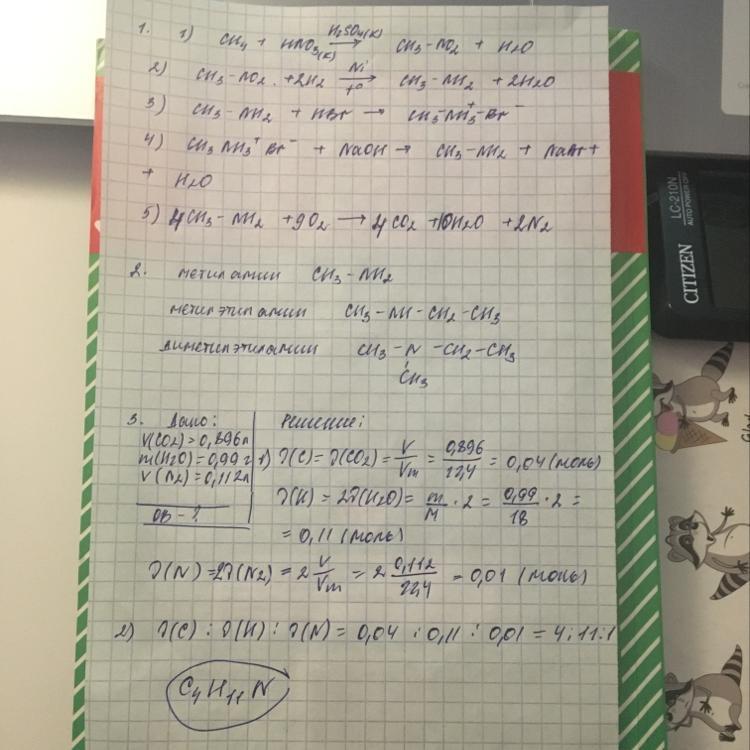 1. 1) CH4 + HNO3(к) H2SO4(к)→ CH3-NO2 + H2O
2) CH3-NO2 + 2H2 Ni t°→ CH3-NH2 + 2H2O
3) CH3-NH2 + HBr → CH3-NH3+Br-
4) CH3NH3+Br- + NaOH → CH3-NH2 + NaBr +
+ H2O
5) 4CH3-NH2 + 9O2 → 4CO2 + 10H2O + 2N2
2. метиламин CH3-NH2
метилэтиламин CH3-NH-CH2-CH3
диметилэтиламин CH3-N-CH2-CH3
CH3
3. Дано: Решение:
V(CO2)=0,896л
m(H2O)=0,99г 1) ν(C)=ν(CO2)=V/Vm=0,896/22,4=0,04(моль)
V(N2)=0,112л
ν(H)=2ν(H2O)=m/M·2=0,99/18·2=
ОВ-?
=0,11(моль)
ν(N)=2ν(N2)=2V/Vm=2 0,112/22,4=0,01(моль)
2) ν(C):ν(H):ν(N)=0,04:0,11:0,01=4:11:1
C4H11N
CITIZEN
LC-210N
AUTO POWER OFF